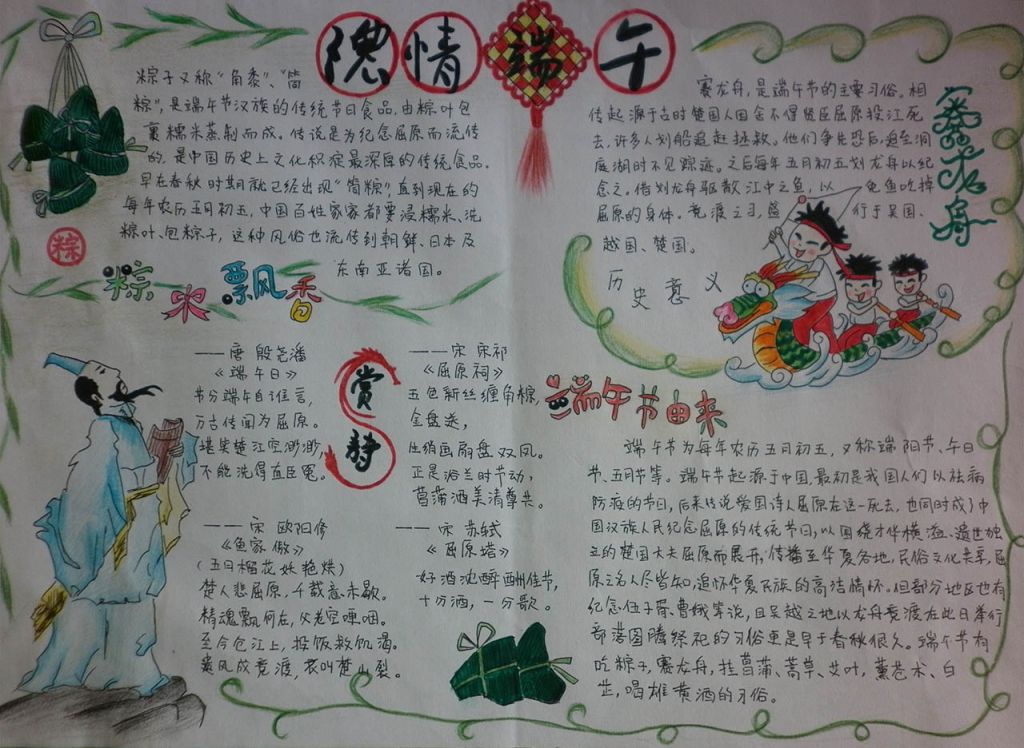 隗情端午
粽子又称“角黍”、“筒
粽”,是端午节汉族的传统节日食品,由粽叶包
裹糯米蒸制而成。传说是为纪念屈原而流传
的,是中国历史上文化积淀最深厚的传统食品。
早在春秋时期就已经出现“筒粽”,直到现在的
每年农历五月初五,中国百姓家家都要浸糯米、洗
粽叶、包粽子,这种风俗也流传到朝鲜、日本及
东南亚诸国。
粽
粽米飘香
赛龙舟,是端午节的主要习俗。相
传起源于古时楚国人因舍不得贤臣屈原投江死
去,许多人划船追赶拯救。他们争先恐后,追至洞
庭湖时不见踪迹。之后每年五月初五划龙舟以纪
念之。借划龙舟驱散江中之鱼,以免鱼吃掉
屈原的身体。竞渡之习,盛行于吴国、
越国、楚国。
历史意义
赛龙舟
赏诗
——唐 殷尧潘
《端午日》
节分端午自谁言,
万古传闻为屈原。
堪笑楚江空渺渺,
不能洗得直臣冤。
——宋 宋祁
《屈原祠》
五色新丝缠角粽,
金盘送,
生绡画扇盘双凤。
正是浴兰时节动,
菖蒲酒美清尊共。
——宋 欧阳修
《鱼家傲》
(五月榴花妖艳烘)
楚人悲屈原,千载意未歇。
精魂飘何在,父老空哽咽。
至今仓江上,投饭救饥渴。
遗风成竞渡,哀叫楚山裂。
——宋 苏轼
《屈原塔》
好酒沈醉酬佳节,
十分酒,一分歌。
端午节由来
端午节为每年农历五月初五,又称端阳节、午日
节、五月节等。端午节起源于中国,最初是我国人们以祛病
防疫的节日,后来传说爱国诗人屈原在这一死去,也同时成了中
国汉族人民纪念屈原的传统节日,以围绕才华横溢、遗世独
立的楚国大夫屈原而展开,传播至华夏各地,民俗文化共享,屈
原之名人尽皆知,追怀华夏民族的高洁情怀。但部分地区也有
纪念伍子胥、曹娥等说,且吴越之地以龙舟竞渡在此日举行
部落图腾祭祀的习俗更是早于春秋很久。端午节有
吃粽子,赛龙舟,挂菖蒲、蒿草、艾叶,薰苍术、白
芷,喝雄黄酒的习俗。